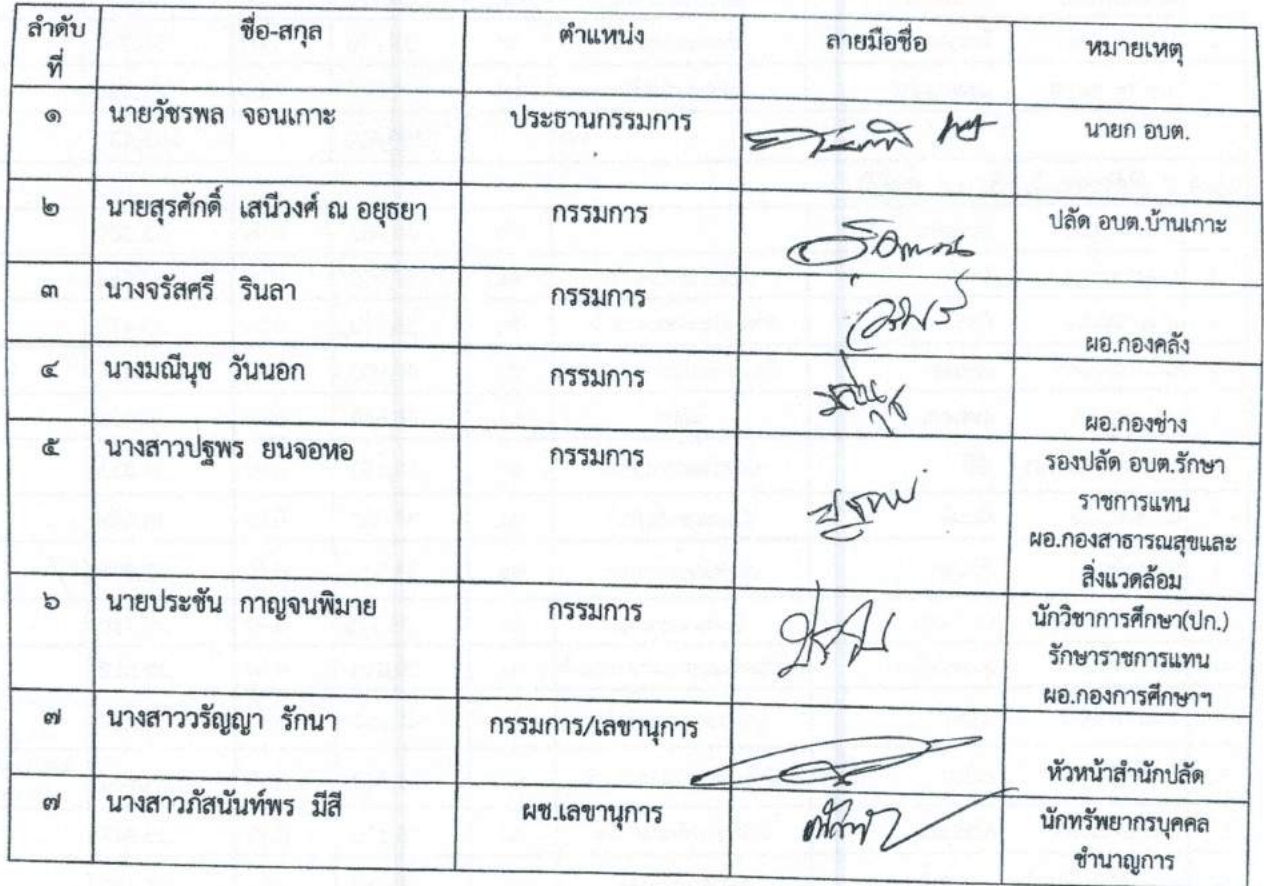 ลำดับ ชื่อ-สกุล ตำแหน่ง ลายมือชื่อ หมายเหตุ
ที่
๑ นายวัชรพล จอนเกาะ ประธานกรรมการ นายก อบต.
๒ นายสุรศักดิ์ เสนีวงศ์ ณ อยุธยา กรรมการ ปลัด อบต.บ้านเกาะ
๓ นางจรัสศรี รินลา กรรมการ ผอ.กองคลัง
๔ นางมณีนุช วันนอก กรรมการ ผอ.กองช่าง
๕ นางสาวปฐพร ยนจอหอ กรรมการ รองปลัด อบต.รักษา
ราชการแทน
ผอ.กองสาธารณสุขและ
สิ่งแวดล้อม
๖ นายประชัน กาญจนพิมาย กรรมการ นักวิชาการศึกษา(ปก.)
รักษาราชการแทน
ผอ.กองการศึกษาฯ
๗ นางสาววรัญญา รักนา กรรมการ/เลขานุการ หัวหน้าสำนักปลัด
๗ นางสาวภัสนันท์พร มีสี ผช.เลขานุการ นักทรัพยากรบุคคล
ชำนาญการ